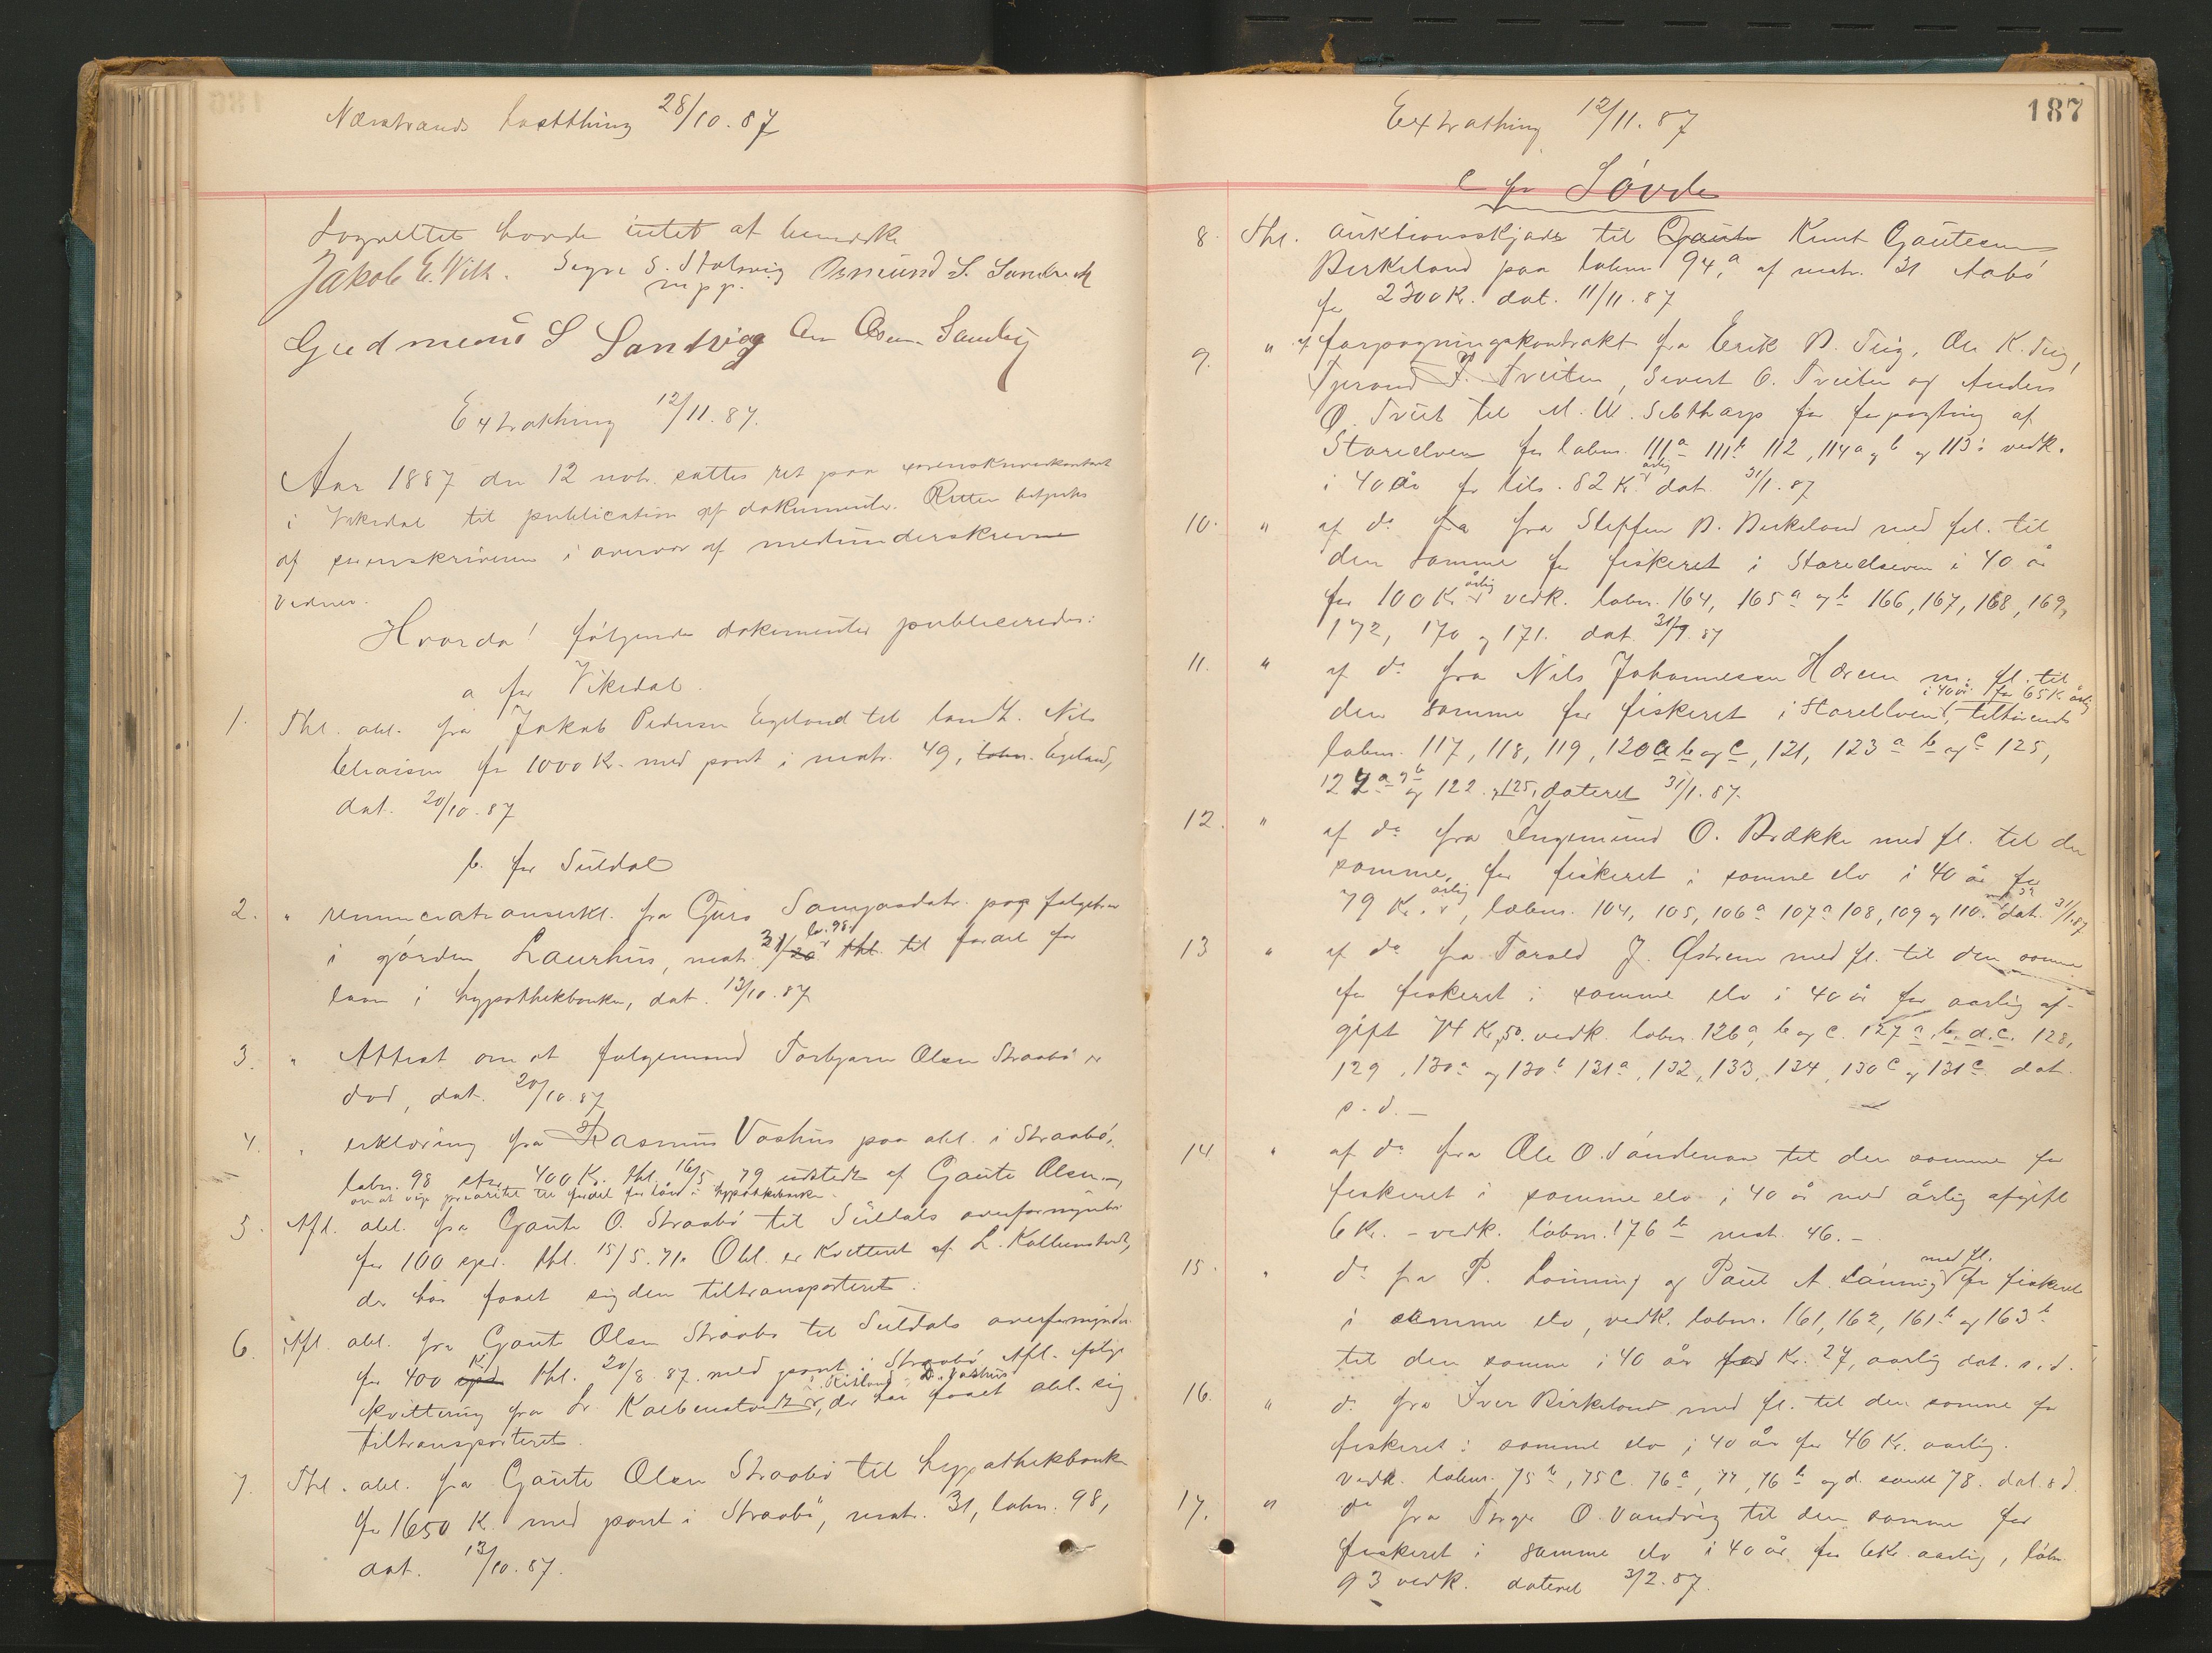 Nærstrands høstthing 28/10. 87
Lagrettet havde intet at bemærke
Jakob E. Vik. Sagne S. Stolsvig Osmund S. Sandvik
m p p.
Gudmund S Sandvig
Extrathing 12/11. 87.
Aar 1887 den 12 novbr. sattes ret paa sorenskriverkontoret
i Vikedal til publication af dokumenter. Retten betjentes
af sorenskriveren i overvær af medunderskrevne
vidner.
Hvorda! følgende dokumenter publiceredes:
a for Vikedal.
1. Thl. obl. fra Jakob Pedersen Egeland til landh. Nils
Eliasen for 1000 Kr. med pant i matr. 49, løbn. Egeland,
dat. 20/10. 87
b. for Suldal
2. " renunciationserkl. fra Guro paa folgebrev
i gården Laurhus, matr. 31/20 lb. 98. thl. til fordel for
laan i hypothekbanken, dat. 13/10. 87
3. " Attest om at folgemand Torbjørn Olsen Straabø er
død, dat. 20/10. 87
4. " erklæring fra Rasmus Vashus paa obl. i Straabø,
løbn. 98 400 Kr. thl. 16/5 79 udstedt af Gaute Olsen
om at vige prioritet til fordel for lån i hypothekbanken
5. Afl. obl. fra Gaute O. Straabø til Suldals overformynderi
for 100 spd. thl. 15/5. 71. Obl. er kvitteret af L. Kolbenstvedt,
der har faaet sig den tiltransporteret.
6. Afl. obl. fra Gaute Olsen Straabø til Suldals overformynderi
for 400 spd. Kr thl. 20/8. 87. med pant i Straabø. Afl. ifølge
kvittering fra L. Kolbenstvedt, der har faaet obl. sig
tiltransporteret.
7. Thl. obl. fra Gaute Olsen Straabø til hypothekbanken
for 1650 Kr. med pant i Straabø, matr. 31, løbn. 98,
dat. 13/10. 87.
Extrathing 12/11. 87
187
c for Søvde
8. Thl. auktionsskjøde til Gaute Knut Gautesen
Birkeland paa løbnr 94, a af matr. 31 Aabø
for 2300 Kr. dat. 11/11. 87
9. " af forpagtningskontrakt fra Erik B. Teig, Ole K. Teig,
Tjerand T. Tveiten, Sivert O. Tveiten og Anders
O. Tveit til M. W. Sibthorp for forpagtning af
Storelven for løbnr. 111a - 111b 112, 114 a og b og 113: vedk.
i 40 år for tils. 82 Kr. årlig dat. 31/1. 87
10. " af do fra Steffen B. Birkeland med fl. til
den samme for fiskeriet i Storelven i 40 år
for 100 Kr årlig vedk. løbnr. 164, 165a og b 166, 167, 168, 169,
172, 170 og 171. dat. 31/1. 87
11. " af do fra Nils Johannessen Hærem m. fl. til
i 40 år for 65 Kr. årlig
den samme for fiskeriet i Storelven, tilhørende
løbnr. 117, 118, 119, 120 a b og c, 121, 123 a b og c 125,
124 a og b og 122. og 125, dateret 31/1. 87.
12. " af do fra Ingemund O. Brække med fl. til den
samme, for fiskeriet i samme elv i 40 år for
79 Kr. årlig, løbnr. 104, 105, 106a 107a 108, 109 og 110. dat. 31/1. 87
13 " af do fra Torald J. Østrem med fl. til den samme
for fiskeriet i samme elv i 40 år for aarlig af-
gift 74 Kr, 50. vedk. løbnr. 126a, b og c. 127 a, b. d. c. 128,
129, 130a og 130b 131a, 132, 133, 134, 130c og 131c dat.
s. d. —
14 " af do fra Ole O. Søndenaa til den samme for
fiskeriet i samme elv i 40 år mod årlig afgift
6 Kr. - vedk. løbnr. 176 b matr. 46. -
15 " do fra P. Lønning og Paul A. Lønning med fl. for fiskeriet
i samme elv, vedk. løbnr. 161, 162, 161b og 163b
til den samme i 40 år for Kr. 27, aarlig dat. s. d.
16. " do fra Iver Birkeland med fl. til den samme for
fiskeriet i samme elv i 40 år for 46 Kr. aarlig.
vedk. løbnr. 75b, 75c. 76a, 77, 76b og d. samt 78. dat. s d.
17. " do fra Torger O. Vandvig til den samme for
fiskeriet i samme elv i 40 år for 6 Kr. aarlig, løbn
93 vedk. dateret 3/2. 87.